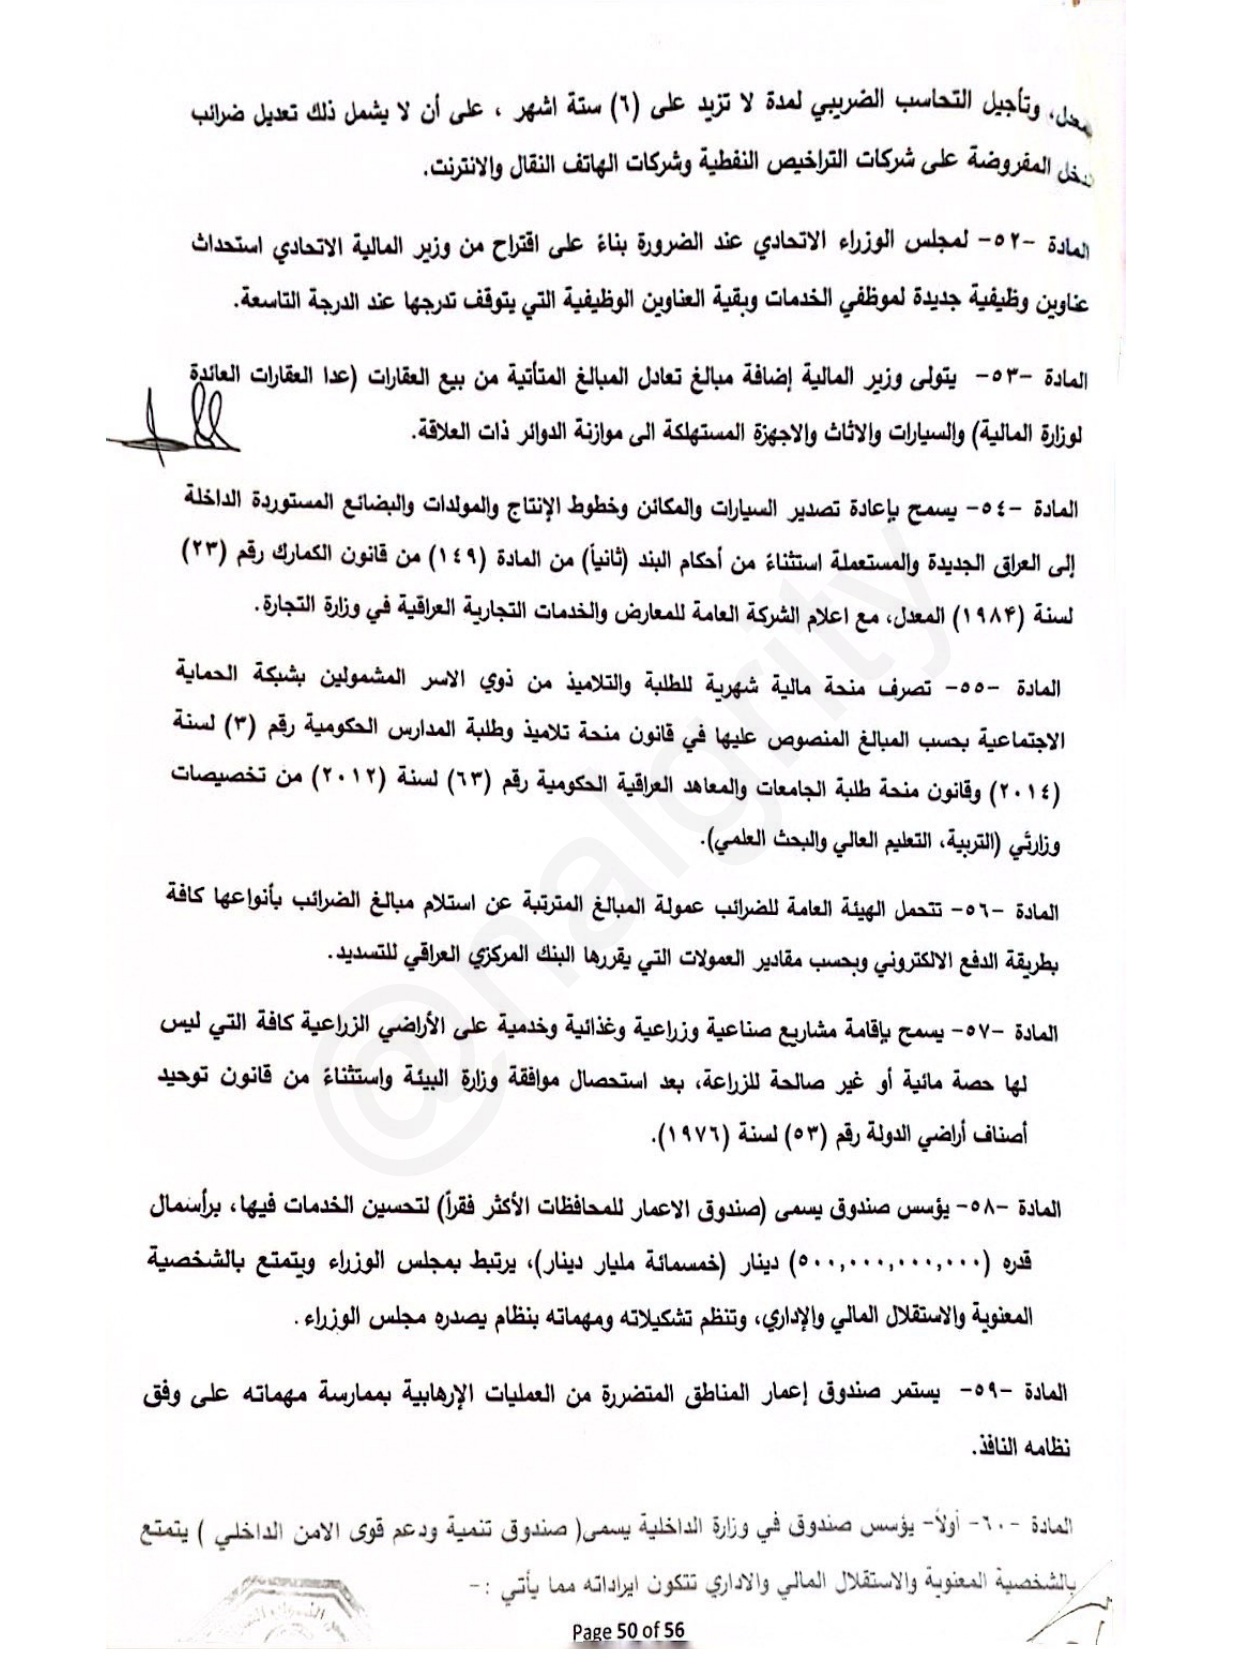 معدل، وتأجيل التحاسب الضريبي لمدة لا تزيد على (٦) ستة اشهر ، على أن لا يشمل ذلك تعديل ضرائب
دخل المفروضة على شركات التراخيص النفطية وشركات الهاتف النقال والانترنت.
المادة -٥٢- لمجلس الوزراء الاتحادي عند الضرورة بناءً على اقتراح من وزير المالية الاتحادي استحداث
عناوين وظيفية جديدة لموظفي الخدمات وبقية العناوين الوظيفية التي يتوقف تدرجها عند الدرجة التاسعة.
المادة -٥٣- يتولى وزير المالية إضافة مبالغ تعادل المبالغ المتأتية من بيع العقارات (عدا العقارات العائدة
لوزارة المالية) والسيارات والاثاث والاجهزة المستهلكة الى موازنة الدوائر ذات العلاقة.
المادة -٥٤- يسمح بإعادة تصدير السيارات والمكائن وخطوط الإنتاج والمولدات والبضائع المستوردة الداخلة
إلى العراق الجديدة والمستعملة استثناءً من أحكام البند (ثانياً) من المادة (١٤٩) من قانون الكمارك رقم (٢٣)
لسنة (١٩٨٤) المعدل، مع اعلام الشركة العامة للمعارض والخدمات التجارية العراقية في وزارة التجارة.
المادة -٥٥- تصرف منحة مالية شهرية للطلبة والتلاميذ من ذوي الاسر المشمولين بشبكة الحماية
الاجتماعية بحسب المبالغ المنصوص عليها في قانون منحة تلاميذ وطلبة المدارس الحكومية رقم (٣) لسنة
(٢٠١٤) وقانون منحة طلبة الجامعات والمعاهد العراقية الحكومية رقم (٦٣) لسنة (٢٠١٢) من تخصيصات
وزارتي (التربية، التعليم العالي والبحث العلمي).
المادة -٥٦- تتحمل الهيئة العامة للضرائب عمولة المبالغ المترتبة عن استلام مبالغ الضرائب بأنواعها كافة
بطريقة الدفع الالكتروني وبحسب مقادير العمولات التي يقررها البنك المركزي العراقي للتسديد.
المادة -٥٧- يسمح بإقامة مشاريع صناعية وزراعية وغذائية وخدمية على الأراضي الزراعية كافة التي ليس
لها حصة مائية أو غير صالحة للزراعة، بعد استحصال موافقة وزارة البيئة واستثناءً من قانون توحيد
أصناف أراضي الدولة رقم (٥٣) لسنة (١٩٧٦).
المادة -٥٨- يؤسس صندوق يسمى (صندوق الاعمار للمحافظات الأكثر فقراً) لتحسين الخدمات فيها، برأسمال
قدره (٥٠٠,٠٠٠,٠٠٠,٠٠٠) دينار (خمسمائة مليار دينار)، يرتبط بمجلس الوزراء ويتمتع بالشخصية
المعنوية والاستقلال المالي والإداري، وتنظم تشكيلاته ومهماته بنظام يصدره مجلس الوزراء .
المادة -٥٩- يستمر صندوق إعمار المناطق المتضررة من العمليات الإرهابية بممارسة مهماته على وفق
نظامه النافذ.
المادة -٦٠- أولاً- يؤسس صندوق في وزارة الداخلية يسمى( صندوق تنمية ودعم قوى الامن الداخلي ) يتمتع
بالشخصية المعنوية والاستقلال المالي والاداري تتكون ايراداته مما يأتي :-
Page 50 of 56
@nalgrity